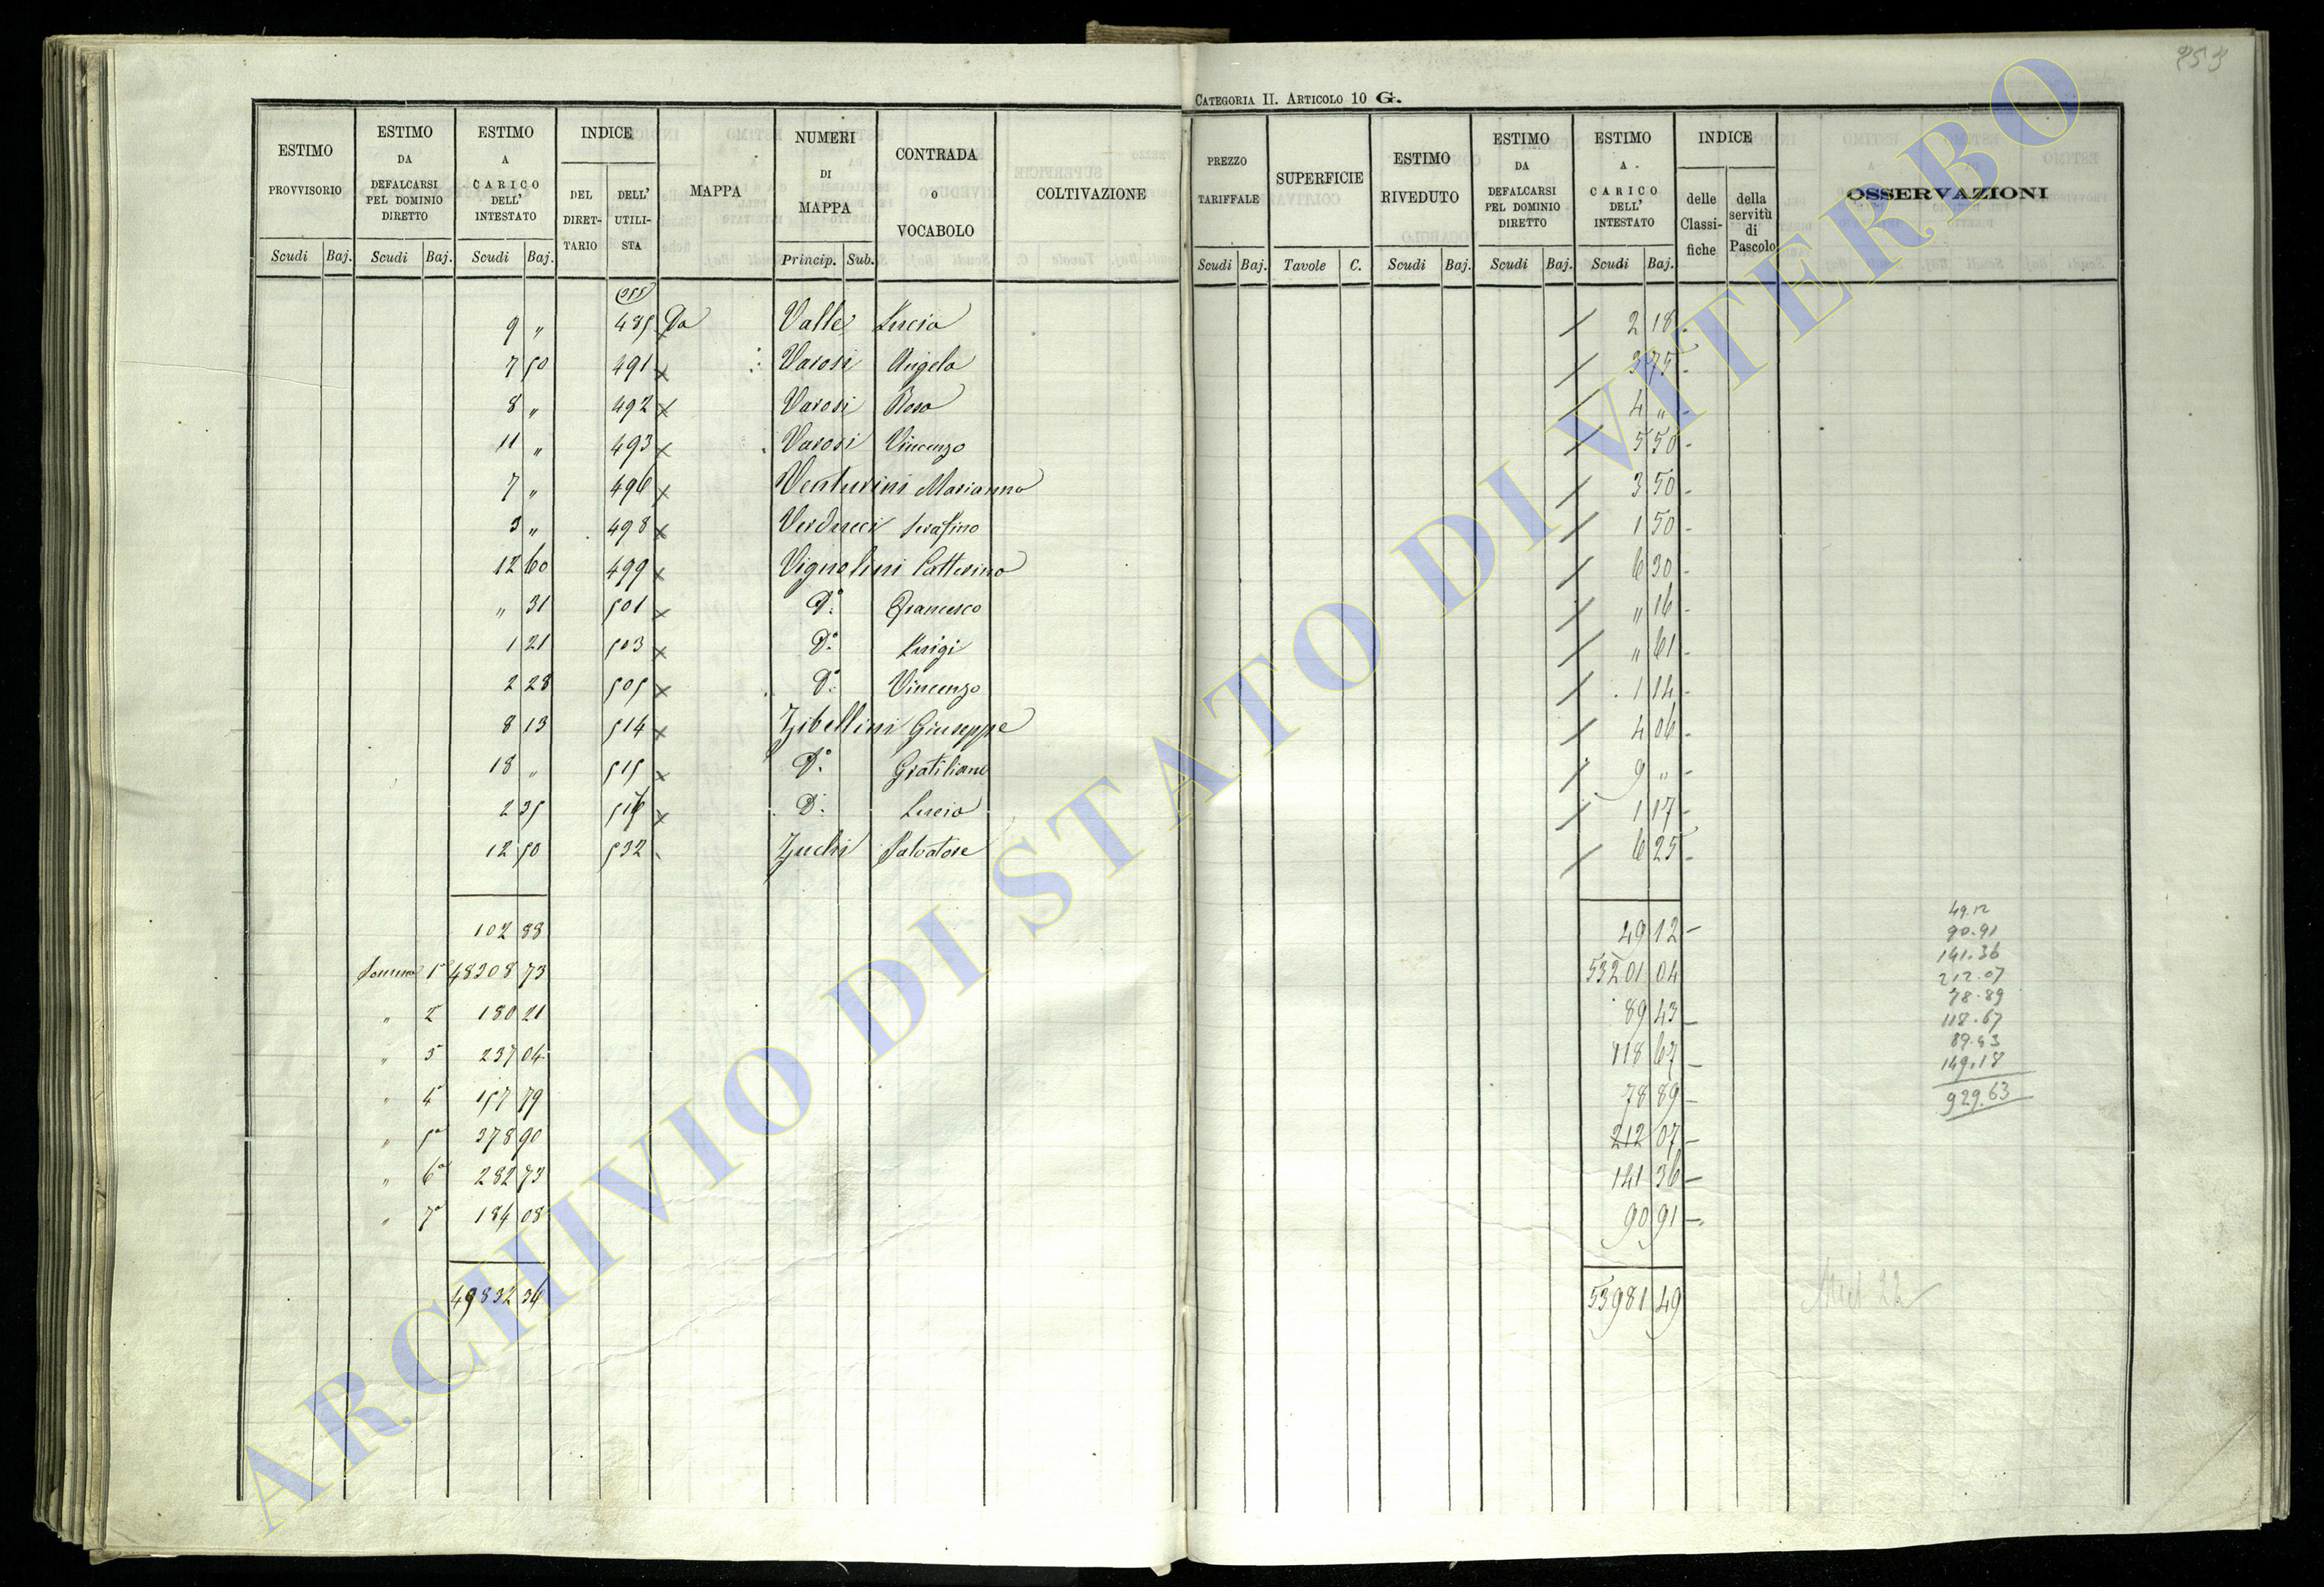 253
CATEGORIA II. ARTICOLO 10 G.
ESTIMO PROVVISORIO Scudi Baj.
ESTIMO DA DEFALCARSI PEL DOMINIO DIRETTO Scudi Baj.
ESTIMO A CARICO DELL' INTESTATO Scudi Baj.
INDICE DEL DIRETTARIO DELL' UTILISTA
MAPPA
NUMERI DI MAPPA Princip. Sub.
CONTRADA o VOCABOLO
COLTIVAZIONE
PREZZO TARIFFALE Scudi Baj.
SUPERFICIE Tavole C.
ESTIMO RIVEDUTO Scudi Baj.
ESTIMO DA DEFALCARSI PEL DOMINIO DIRETTO Scudi Baj.
ESTIMO A CARICO DELL' INTESTATO Scudi Baj.
INDICE delle Classifiche della servitù di Pascolo
OSSERVAZIONI
9 " 485 Da Valle Lucia / 2 18 -
7 50 491 x Varosi Angela / 3 75 -
8 " 492 x Varosi Rosa / 4 " -
11 " 493 x Varosi Vincenzo / 5 50 -
7 " 496 x Venturini Marianna / 3 50 -
3 " 498 x Verducci Serafino / 1 50 -
12 60 499 x Vignolini Catterina / 6 30 -
" 31 501 x D.o Francesco / " 16 -
1 21 503 x D.o Luigi / " 61 -
2 28 505 x D.o Vincenzo / 1 14 -
8 13 514 x Zibellini Giuseppe / 4 06 -
18 " 515 x D.o Gratiliano / 9 " -
2 35 516 x D.o Lucia / 1 17 -
12 50 532 Zuchi Salvatore / 6 25 -
102 88 49 12 -
Somma 1a 48308 73 53201 04
" 2a 180 21 89 43 -
" 3 237 04 118 67 -
" 4a 157 79 78 89 -
" 5a 378 90 212 07 -
" 6a 282 73 141 36 -
" 7a 184 08 90 91 -
49832 36 53981 49
49.12
90.91
141.36
212.07
78.89
118.67
89.43
149.18
929.63
ARCHIVIO DI STATO DI VITERBO